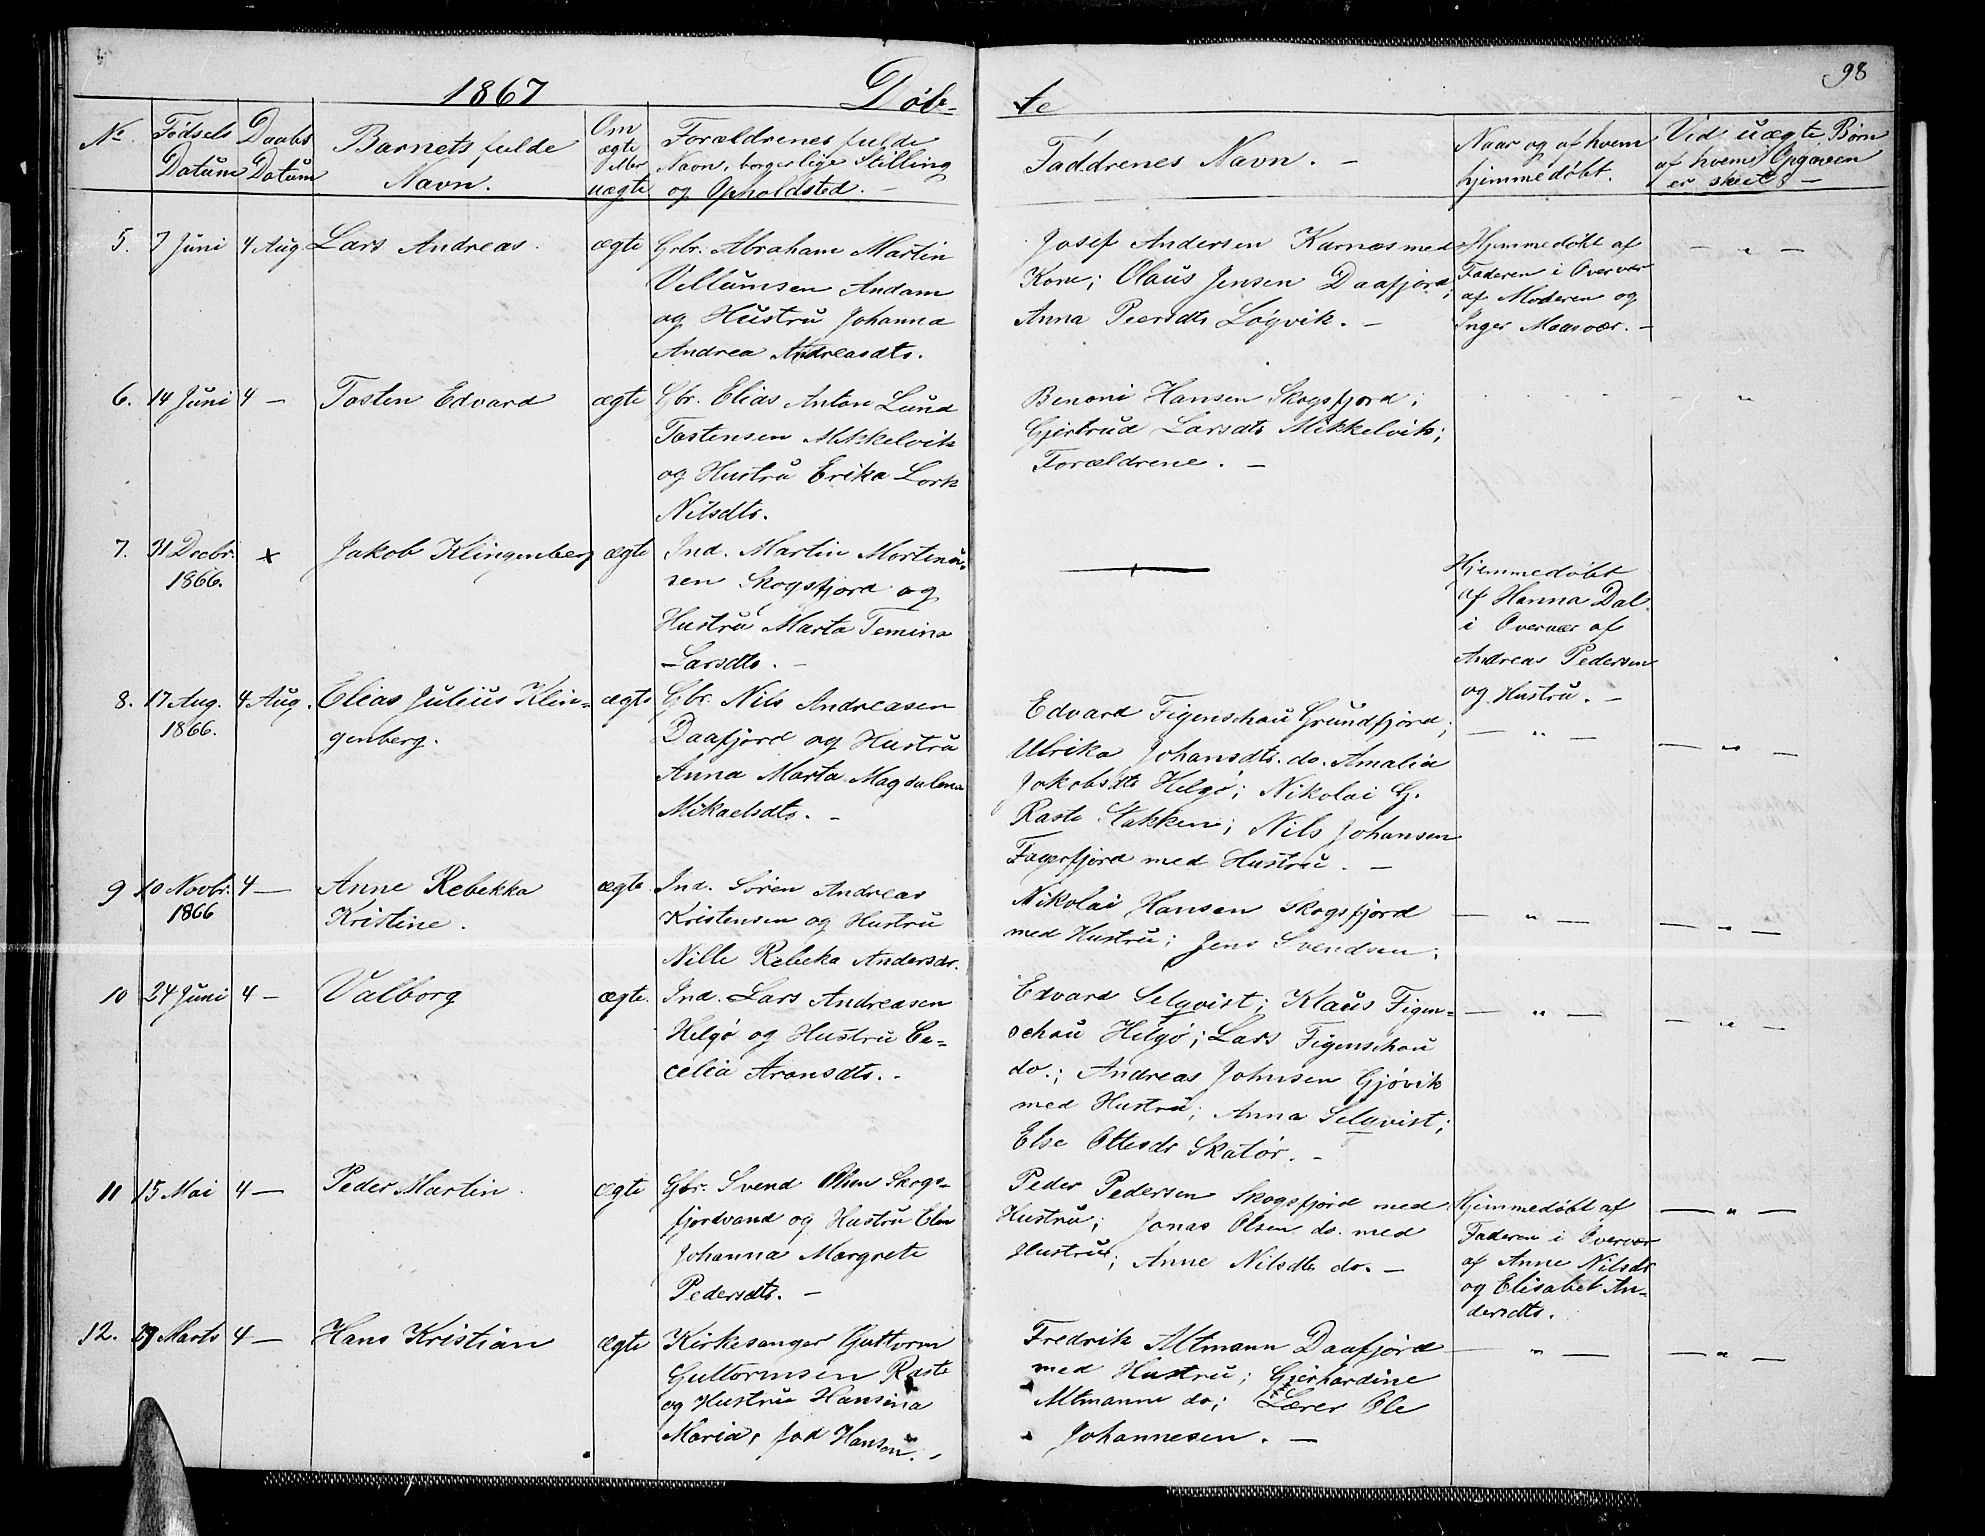 98
1867 Døb- te
No
Fødsels Datum
Daabs Datum
Barnets fulde Navn.
Om ægte eller uægte
Forældrenes fulde Navn, borgerlige Stilling og Opholdsted. -
Faddrenes Navn. -
Naar og af hvem hjemmedøbt.
Ved uægte Børn af hvem Opgaven er skeet. -
5. 7 Juni 4 Aug. Lars Andreas. ægte
Gbr. Abraham Martin
Villumsen Andam
og Hustru Johanna
Andrea Andreasdtr.
Josef Andersen Karnæs med
Kone; Olaus Jensen Daafjord;
Anna Peersdtr Løgvik. -
Hjemmedøbt af
Faderen i Overvær
af Moderen og
Inger Maasvær. -
— " —
6. 14 Juni 4 — Tosten Edvard ægte
Gbr. Elias Anton Lund
Tostensen Mikkelvik
og Hustru Erika Lork
Nilsdtr.
Benoni Hansen Skogsfjord;
Gjertrud Larsdtr Mikkelvik;
Forældrene. -
— "
7. 31 Decbr. 1866. x Jakob Klingenberg ægte
Ind. Martin Mortinu-
sen Skogsfjord og
Hustru Marta Temina
Larsdtr. -
Hjemmedøbt
af Hanna Dal
i Overvær af
Andreas Pedersen
og Hustru. -
8. 17 Aug. 1866. 4 Aug. Elias Julius Klin-
genberg. ægte
Gbr. Nils Andreasen
Daafjord og Hustru
Anna Marta Magdalena
Mikaelsdtr. -
Edvard Figenschau Grundfjord;
Ulrika Johansdtr. do. Amalia
Jakobsdtr Helgø; Nikolai G.
Raste Stakken; Nils Johansen
Fagerfjord med Hustru. -
— " —
— " —
9 10 Novbr. 1866 4 — Anne Rebekka
Kristine. ægte.
Ind. Søren Andreas
Kristensen og Hustru
Nille Rebeka Andersdr.
Nikolai Hansen Skogsfjord
med Hustru; Jens Svendsen.
— " —
— " —
10 24 Juni 4 — Valborg ægte.
Ind. Lars Andreasen
Helgø og Hustru Ce-
celia Aronsdtr. -
Edvard Selqvist; Klaus Figen-
schau Helgø; Lars Figenschau
do.; Andreas Johnsen Gjøvik
med Hustru; Anna Selqvist;
Else Ottesdr Skatør. -
— " —
— " —
11 15 Mai 4 — Peder Martin. ægte
Gbr. Svend Olsen Skogs-
fjordvand og Hustru Elen
Johanna Margrete
Pedersdtr. -
Peder Pedersen Skogsfjord med
Hustru; Jonas Olsen do. med
Hustru; Anne Nilsdtr do. -
Hjemmedøbt af
Faderen i Overvær
af Anne Nilsdr
og Elisabet An-
dersdtr.
— " —
12. Marts 4 — Hans Kristian ægte
Kirkesanger Guttorm
Guttormsen Raste
og Hustru Hansina
Maria, fød Hansen. -
Fredrik Altmann Daafjord
med Hustru; Gjerhardine
Altmann do; Lærer Ole
Johannesen. -
— " —
— " —